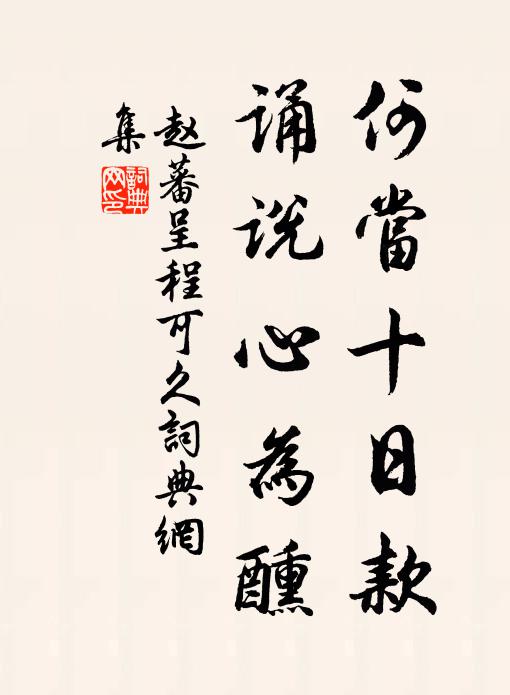 何當十日款
誦説心為醺
赵蕃呈程可久詞典網
集
詞典
网印